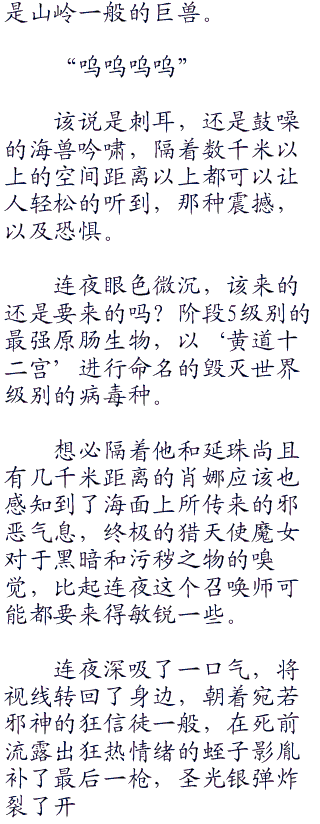 是山岭一般的巨兽。
“呜呜呜呜”
该说是刺耳，还是鼓噪
的海兽吟啸，隔着数千米以
上的空间距离以上都可以让
人轻松的听到，那种震撼，
以及恐惧。
连夜眼色微沉，该来的
还是要来的吗？阶段5级别的
最强原肠生物，以‘黄道十
二宫’进行命名的毁灭世界
级别的病毒种。
想必隔着他和延珠尚且
有几千米距离的肖娜应该也
感知到了海面上所传来的邪
恶气息，终极的猎天使魔女
对于黑暗和污秽之物的嗅
觉，比起连夜这个召唤师可
能都要来得敏锐一些。
连夜深吸了一口气，将
视线转回了身边，朝着宛若
邪神的狂信徒一般，在死前
流露出狂热情绪的蛭子影胤
补了最后一枪，圣光银弹炸
裂了开